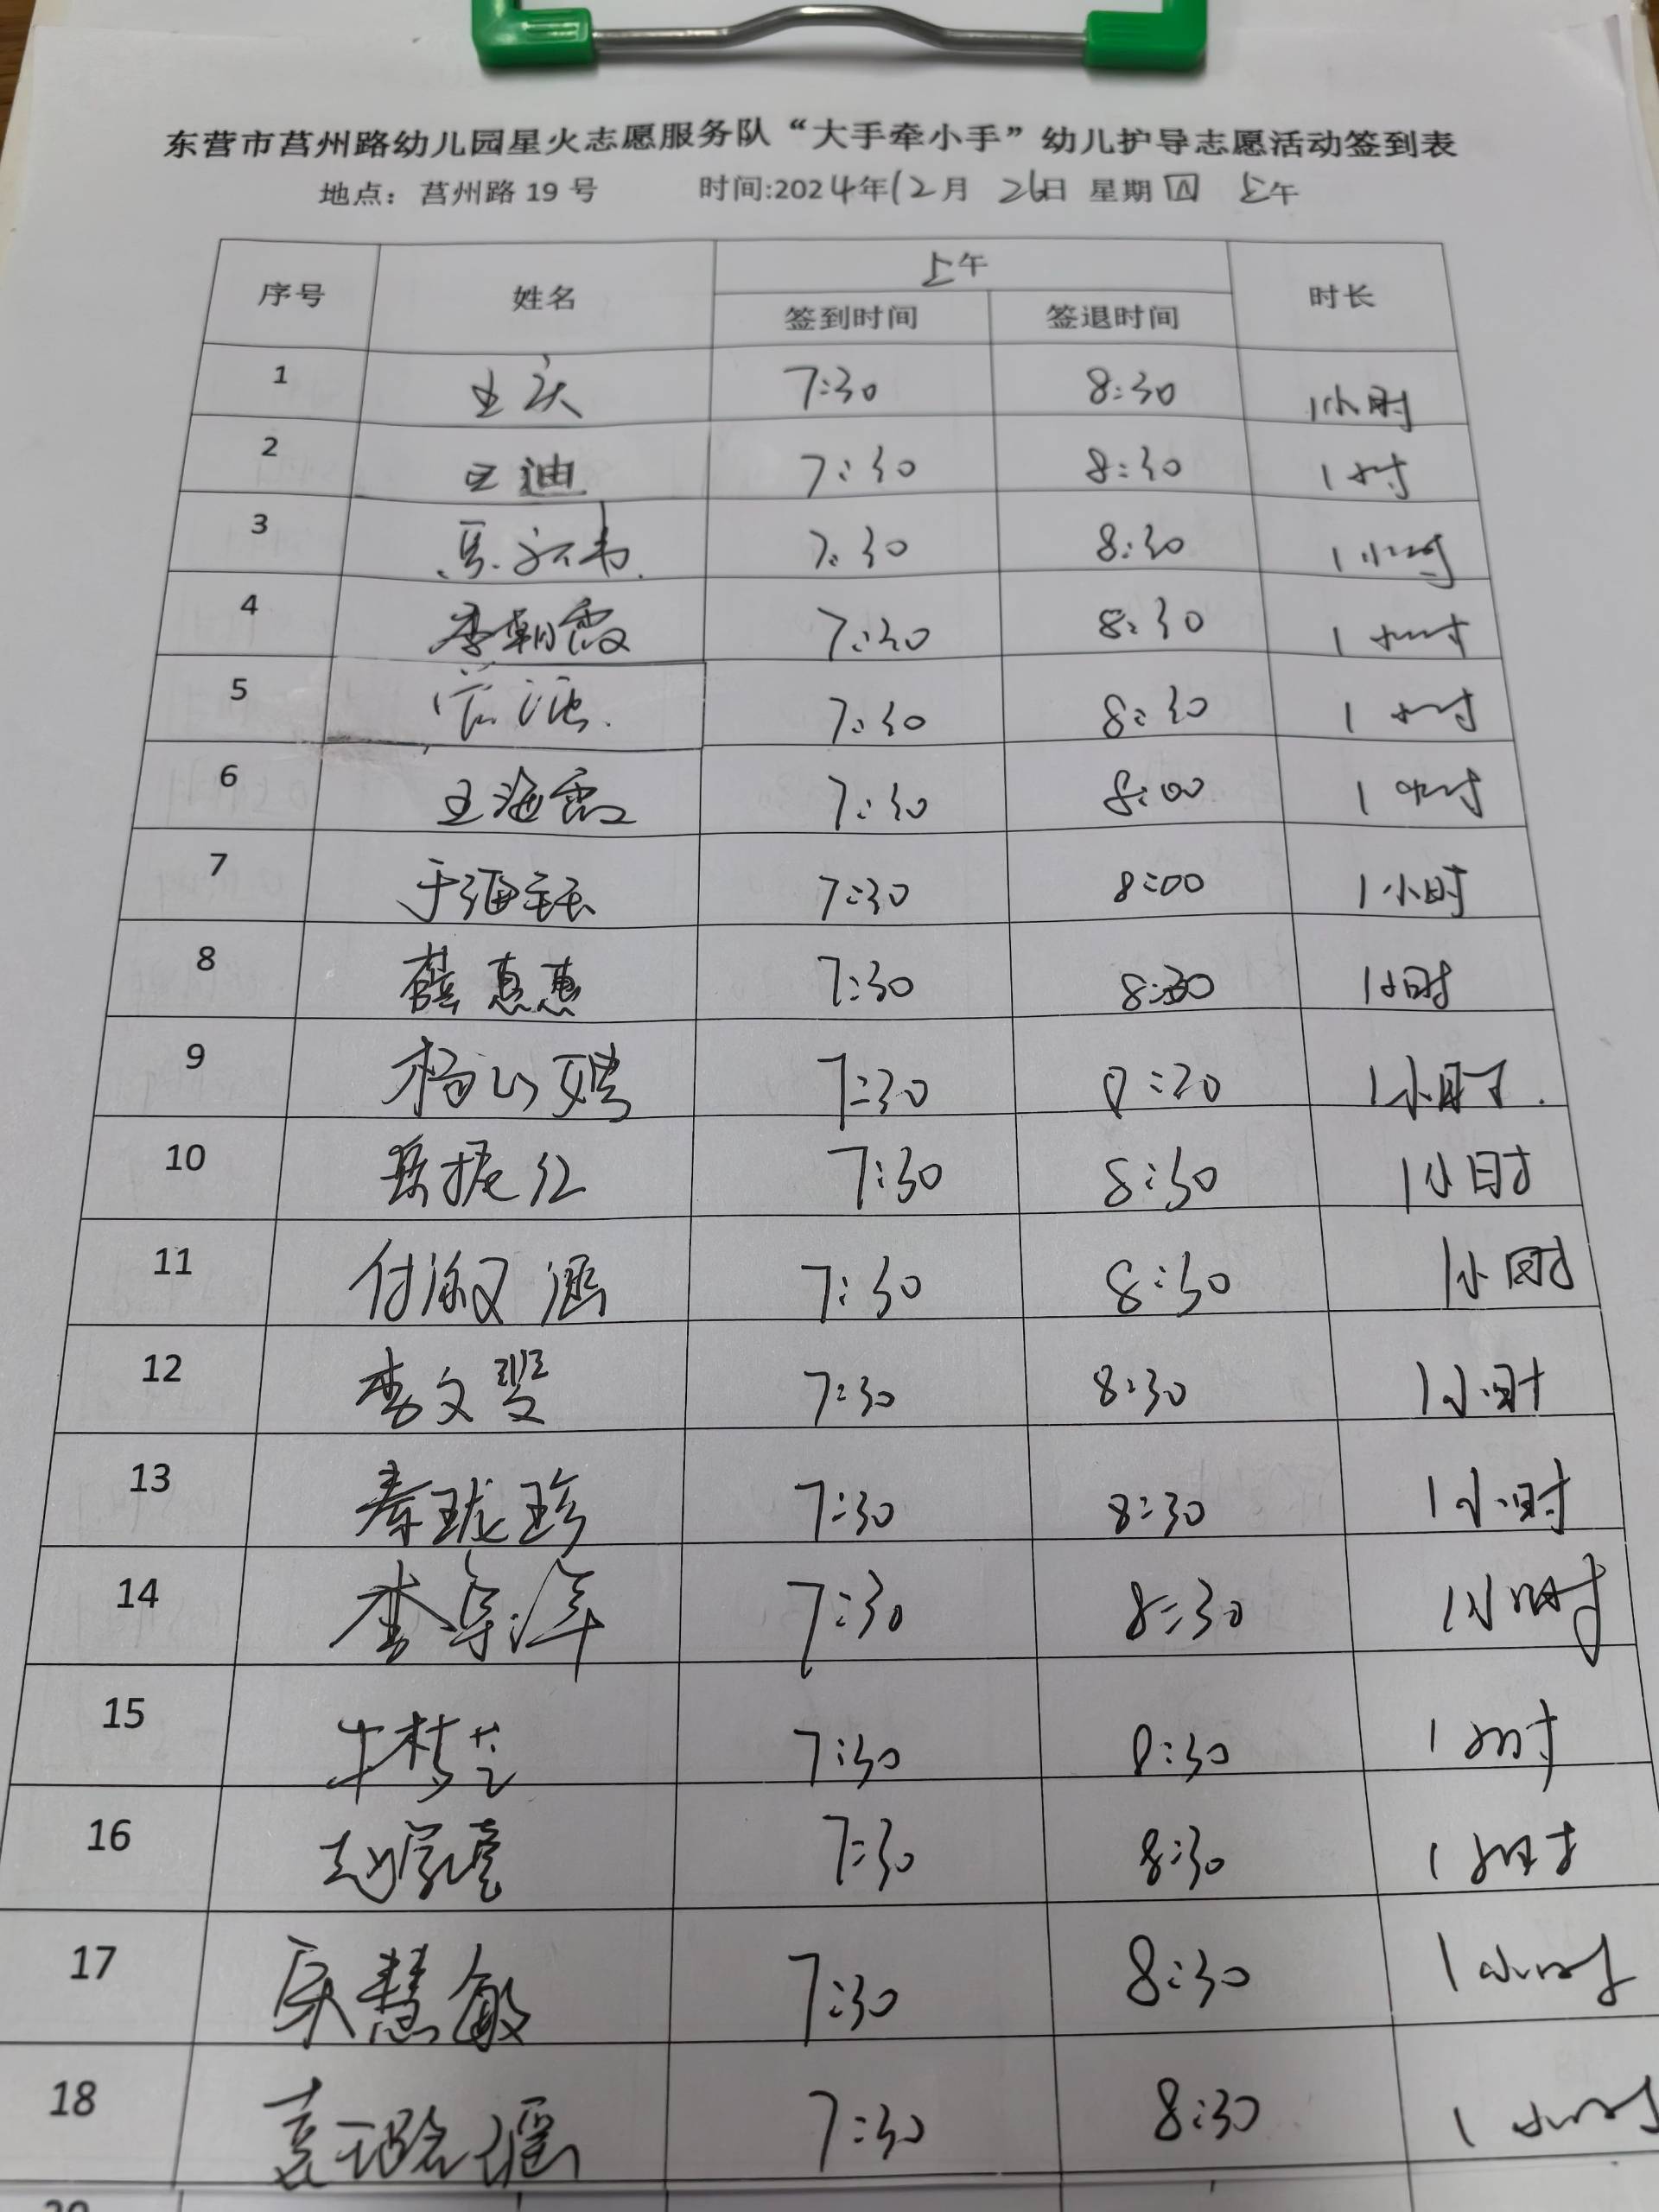 东营市莒州路幼儿园星火志愿服务队“大手牵小手”幼儿护导志愿活动签到表
地点：莒州路 19 号 时间:2024年12月 26日 星期四 上午
序号 姓名 上午 时长
签到时间 签退时间
1 王庆 7:30 8:30 1小时
2 王迪 7:30 8:30 1小时
3 7:30 8:30 1小时
4 李朝霞 7:30 8:30 1小时
5 7:30 8:30 1小时
6 王海霞 7:30 8:00 1小时
7 于海钰 7:30 8:00 1小时
8 薛惠惠 7:30 8:30 1小时
9 杨 娉 7:30 8:20 1小时.
10 振红 7:30 8:30 1小时
11 付淑涵 7:30 8:30 1小时
12 李文翌 7:30 8:30 1小时
13 秦珑珍 7:30 8:30 1小时
14 李 7:30 8:30 1小时
15 牛梦芸 7:30 8:30 1小时
16 赵 7:30 8:30 1小时
17 慧敏 7:30 8:30 1小时
18 袁璐瑶 7:30 8:30 1小时